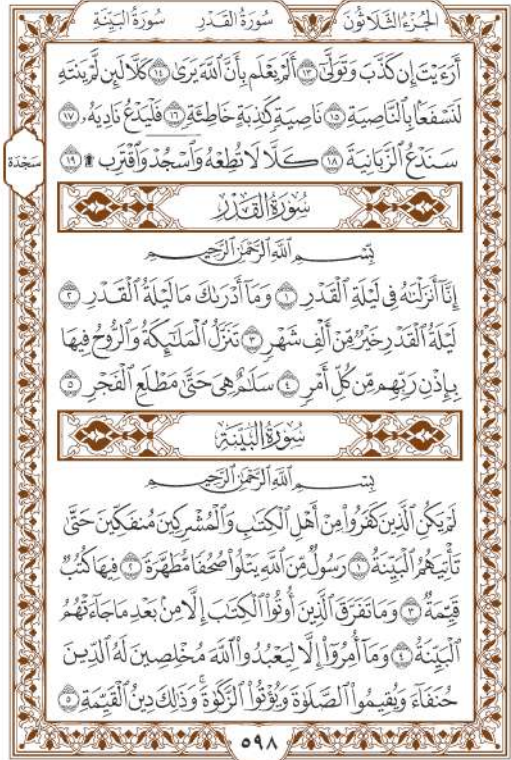 الجُزْءُ الثَّلَاثُونَ سُورَةُ القَدْرِ سُورَةُ البَيِّنَةِ
أَرَءَيْتَ إِن كَذَّبَ وَتَوَلَّىٰٓ ١٣ أَلَمْ يَعْلَم بِأَنَّ ٱللَّهَ يَرَىٰ ١٤ كَلَّا لَئِن لَّمْ يَنتَهِ
لَنَسْفَعًۢا بِٱلنَّاصِيَةِ ١٥ نَاصِيَةٖ كَٰذِبَةٍ خَاطِئَةٖ ١٦ فَلْيَدْعُ نَادِيَهُۥ ١٧
سَنَدْعُ ٱلزَّبَانِيَةَ ١٨ كَلَّا لَا تُطِعْهُ وَٱسْجُدْۤ وَٱقْتَرِب ۩ ١٩
سَجْدَة
سُورَةُ القَدْرِ
بِسْمِ ٱللَّهِ ٱلرَّحْمَٰنِ ٱلرَّحِيمِ
إِنَّآ أَنزَلْنَٰهُ فِي لَيْلَةِ ٱلْقَدْرِ ١ وَمَآ أَدْرَىٰكَ مَا لَيْلَةُ ٱلْقَدْرِ ٢
لَيْلَةُ ٱلْقَدْرِ خَيْرٞ مِّنْ أَلْفِ شَهْرٖ ٣ تَنَزَّلُ ٱلْمَلَٰٓئِكَةُ وَٱلرُّوحُ فِيهَا
بِإِذْنِ رَبِّهِم مِّن كُلِّ أَمْرٖ ٤ سَلَٰمٌ هِيَ حَتَّىٰ مَطْلَعِ ٱلْفَجْرِ ٥
سُورَةُ البَيِّنَةِ
بِسْمِ ٱللَّهِ ٱلرَّحْمَٰنِ ٱلرَّحِيمِ
لَمْ يَكُنِ ٱلَّذِينَ كَفَرُوا۟ مِنْ أَهْلِ ٱلْكِتَٰبِ وَٱلْمُشْرِكِينَ مُنفَكِّينَ حَتَّىٰ
تَأْتِيَهُمُ ٱلْبَيِّنَةُ ١ رَسُولٞ مِّنَ ٱللَّهِ يَتْلُوا۟ صُحُفٗا مُّطَهَّرَةٗ ٢ فِيهَا كُتُبٞ
قَيِّمَةٞ ٣ وَمَا تَفَرَّقَ ٱلَّذِينَ أُوتُوا۟ ٱلْكِتَٰبَ إِلَّا مِنۢ بَعْدِ مَا جَآءَتْهُمُ
ٱلْبَيِّنَةُ ٤ وَمَآ أُمِرُوٓا۟ إِلَّا لِيَعْبُدُوا۟ ٱللَّهَ مُخْلِصِينَ لَهُ ٱلدِّينَ
حُنَفَآءَ وَيُقِيمُوا۟ ٱلصَّلَوٰةَ وَيُؤْتُوا۟ ٱلزَّكَوٰةَۚ وَذَٰلِكَ دِينُ ٱلْقَيِّمَةِ ٥
٥٩٨